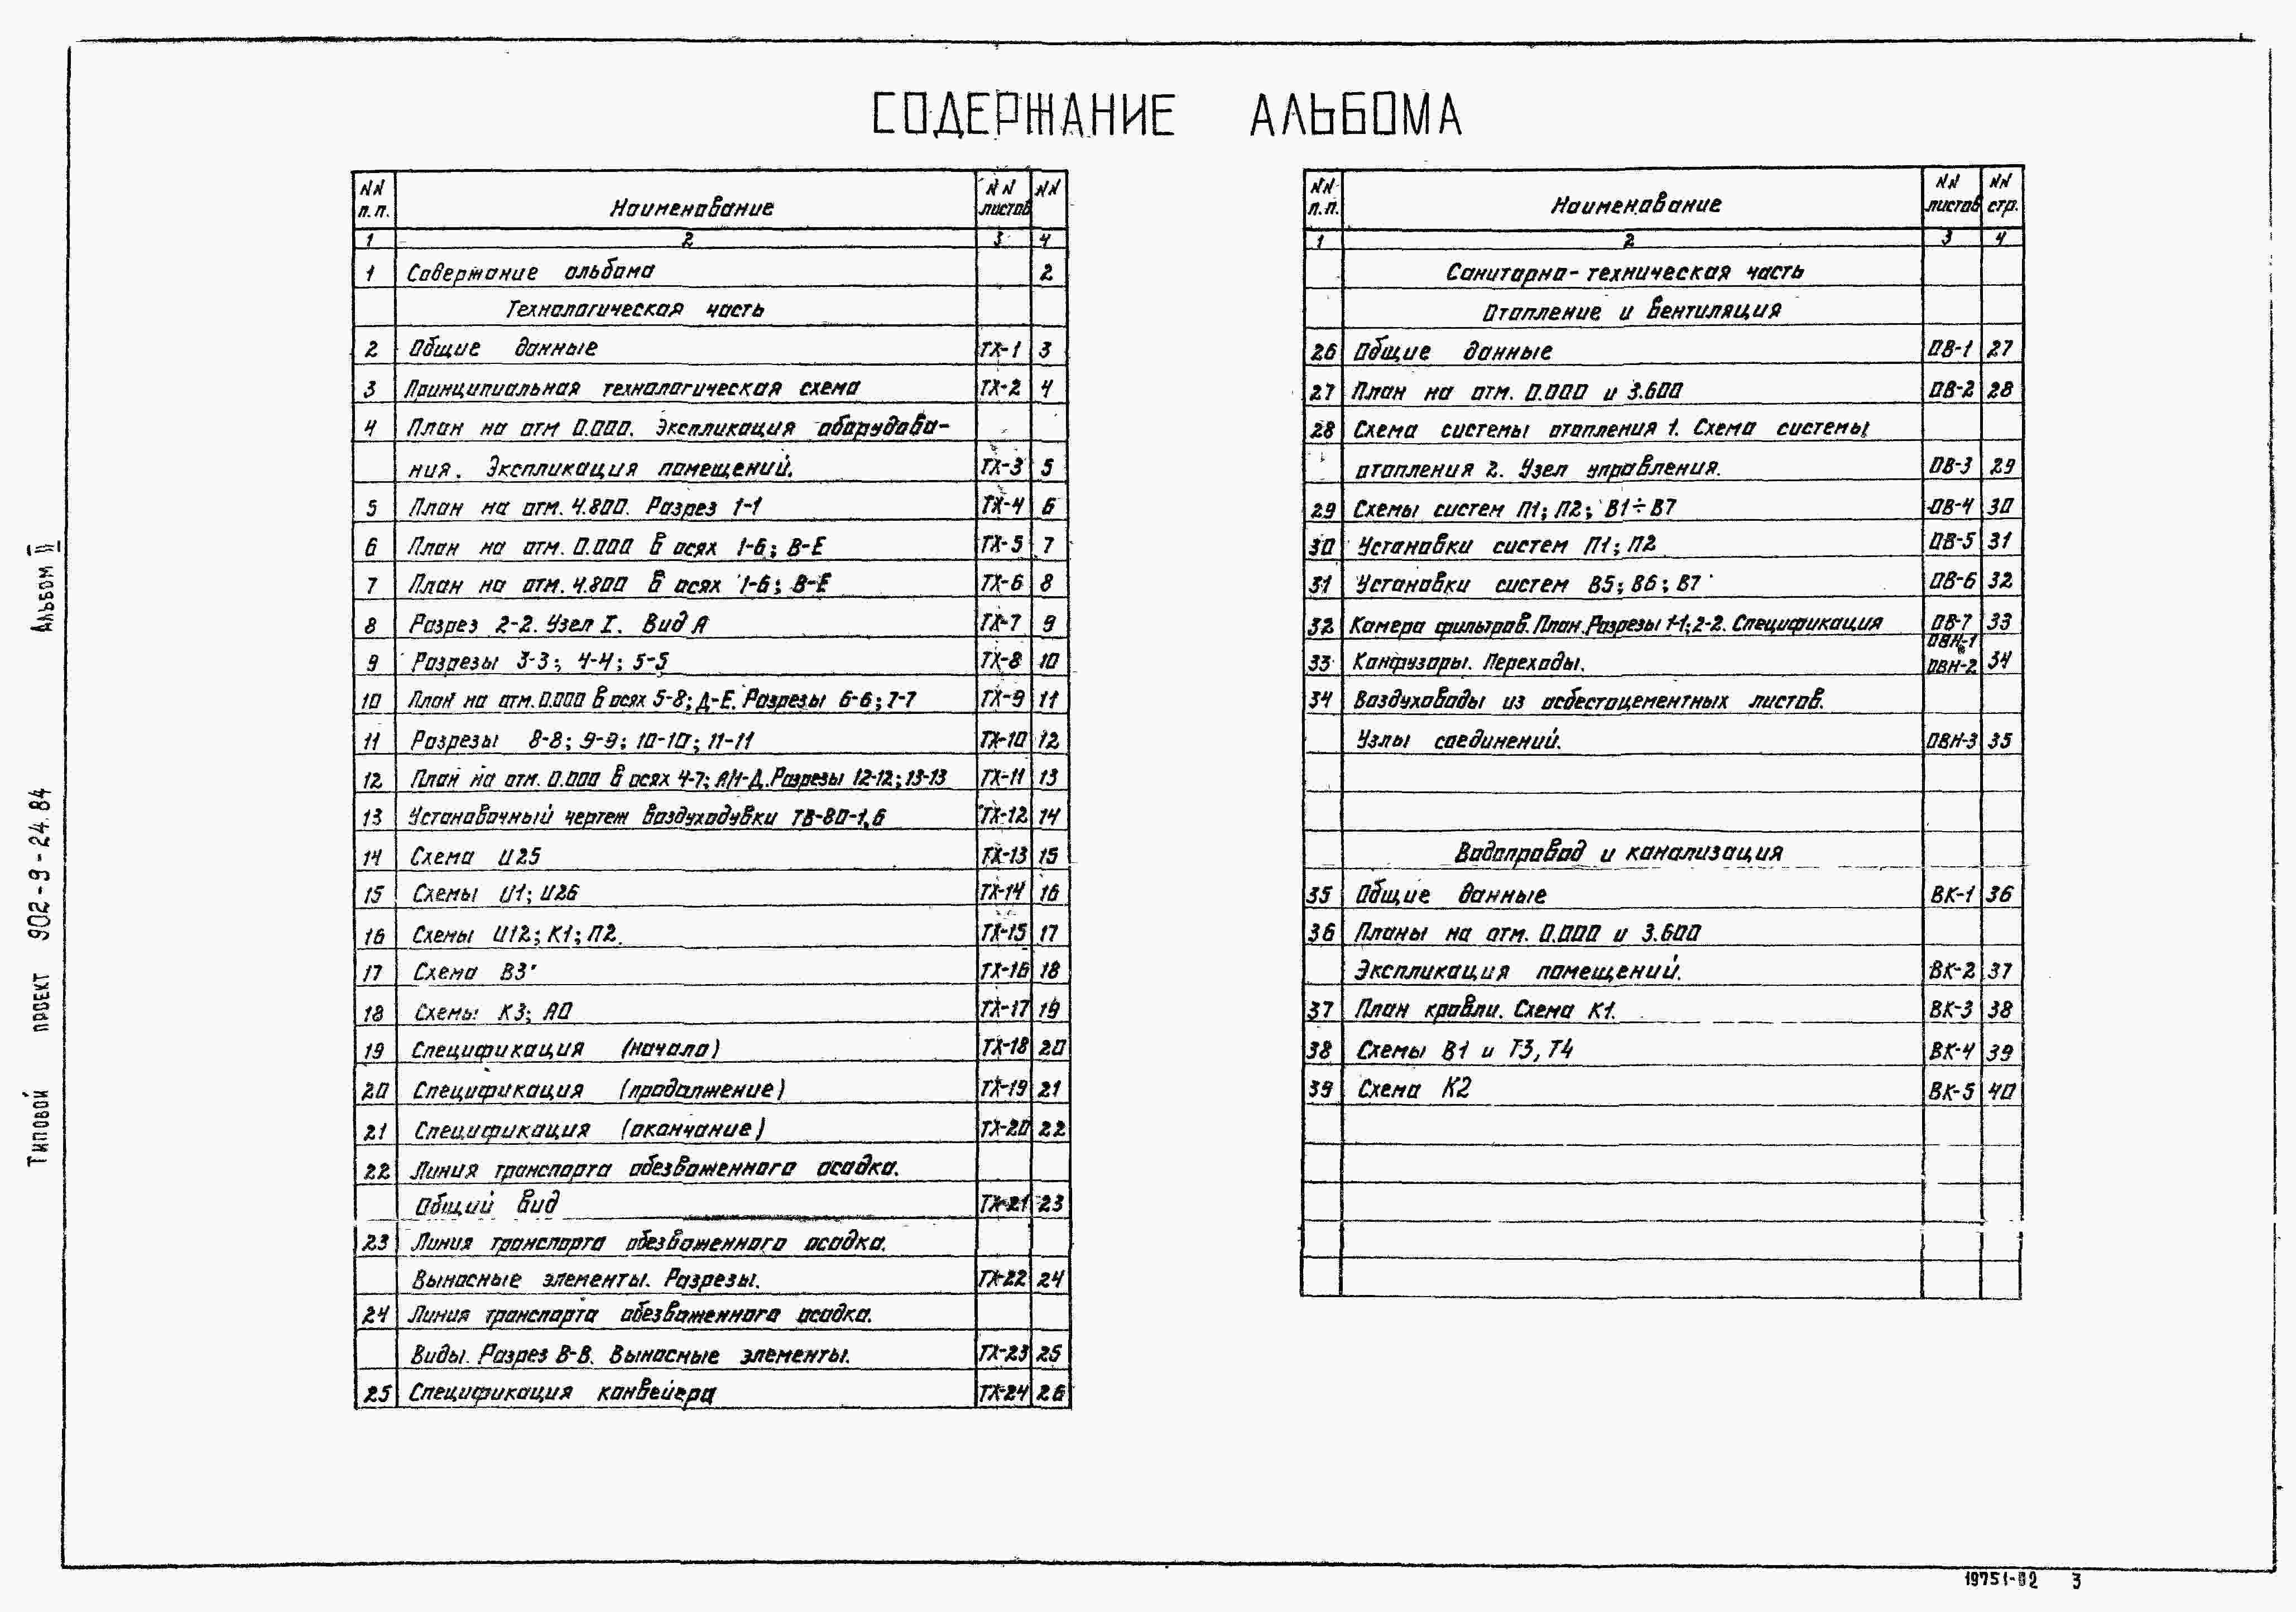 СОДЕРЖАНИЕ АЛЬБОМА
NN п.п. Наименование NN листов NN
1 2 3 4
1 Содержание альбома 2
Технологическая часть
2 Общие данные ТХ-1 3
3 Принципиальная технологическая схема ТХ-2 4
4 План на отм 0.000. Экспликация оборудова-
ния. Экспликация помещений. ТХ-3 5
5 План на отм. 4.800. Разрез 1-1 ТХ-4 6
6 План на отм. 0.000 в осях 1-6; В-Е ТХ-5 7
7 План на отм. 4.800 в осях 1-6; В-Е ТХ-6 8
8 Разрез 2-2. Узел I. Вид А ТХ-7 9
9 Разрезы 3-3; 4-4; 5-5 ТХ-8 10
10 План на отм. 0.000 в осях 5-8; Д-Е. Разрезы 6-6; 7-7 ТХ-9 11
11 Разрезы 8-8; 9-9; 10-10; 11-11 ТХ-10 12
12 План на отм. 0.000 в осях 4-7; А/1-Д. Разрезы 12-12; 13-13 ТХ-11 13
13 Установочный чертеж воздуходувки ТВ-80-1,6 ТХ-12 14
14 Схема И25 ТХ-13 15
15 Схемы И1; И26 ТХ-14 16
16 Схемы И12; К1; П2. ТХ-15 17
17 Схема В3 ТХ-16 18
18 Схемы К3; А0 ТХ-17 19
19 Спецификация (начало) ТХ-18 20
20 Спецификация (продолжение) ТХ-19 21
21 Спецификация (окончание) ТХ-20 22
22 Линия транспорта обезвоженного осадка.
Общий вид ТХ-21 23
23 Линия транспорта обезвоженного осадка.
Выносные элементы. Разрезы. ТХ-22 24
24 Линия транспорта обезвоженного осадка.
Виды. Разрез В-В. Выносные элементы. ТХ-23 25
25 Спецификация конвейера ТХ-24 26
NN п.п. Наименование NN листов NN стр.
1 2 3 4
Санитарно-техническая часть
Отопление и вентиляция
26 Общие данные ОВ-1 27
27 План на отм. 0.000 и 3.600 ОВ-2 28
28 Схема системы отопления 1. Схема системы
отопления 2. Узел управления. ОВ-3 29
29 Схемы систем П1; П2; В1÷В7 ОВ-4 30
30 Установки систем П1; П2 ОВ-5 31
31 Установки систем В5; В6; В7 ОВ-6 32
32 Камера фильтров. План. Разрезы 1-1; 2-2. Спецификация ОВ-7 33
33 Конфузоры. Переходы. ОВН-1 ОВН-2 34
34 Воздуховоды из асбестоцементных листов.
Узлы соединений. ОВН-3 35
Водопровод и канализация
35 Общие данные ВК-1 36
36 Планы на отм. 0.000 и 3.600
Экспликация помещений. ВК-2 37
37 План кровли. Схема К1. ВК-3 38
38 Схемы В1 и Т3, Т4 ВК-4 39
39 Схема К2 ВК-5 40
Типовой проект 902-9-24.84 Альбом II
19751-02 3